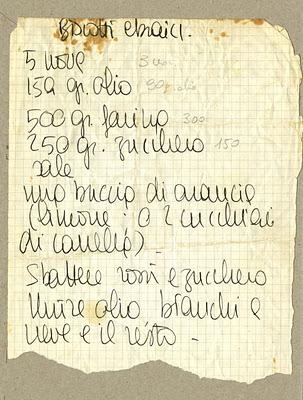 Biscotti ebraici.
5 uova 3 uova
150 gr. olio 90 olio
500 gr. farina 300
250 gr. zucchero 150
sale
una buccia di arancia
(limone o 2 cucchiai
di cannella)
Sbattere rossi e zucchero
Unire olio bianchi a
neve e il resto -